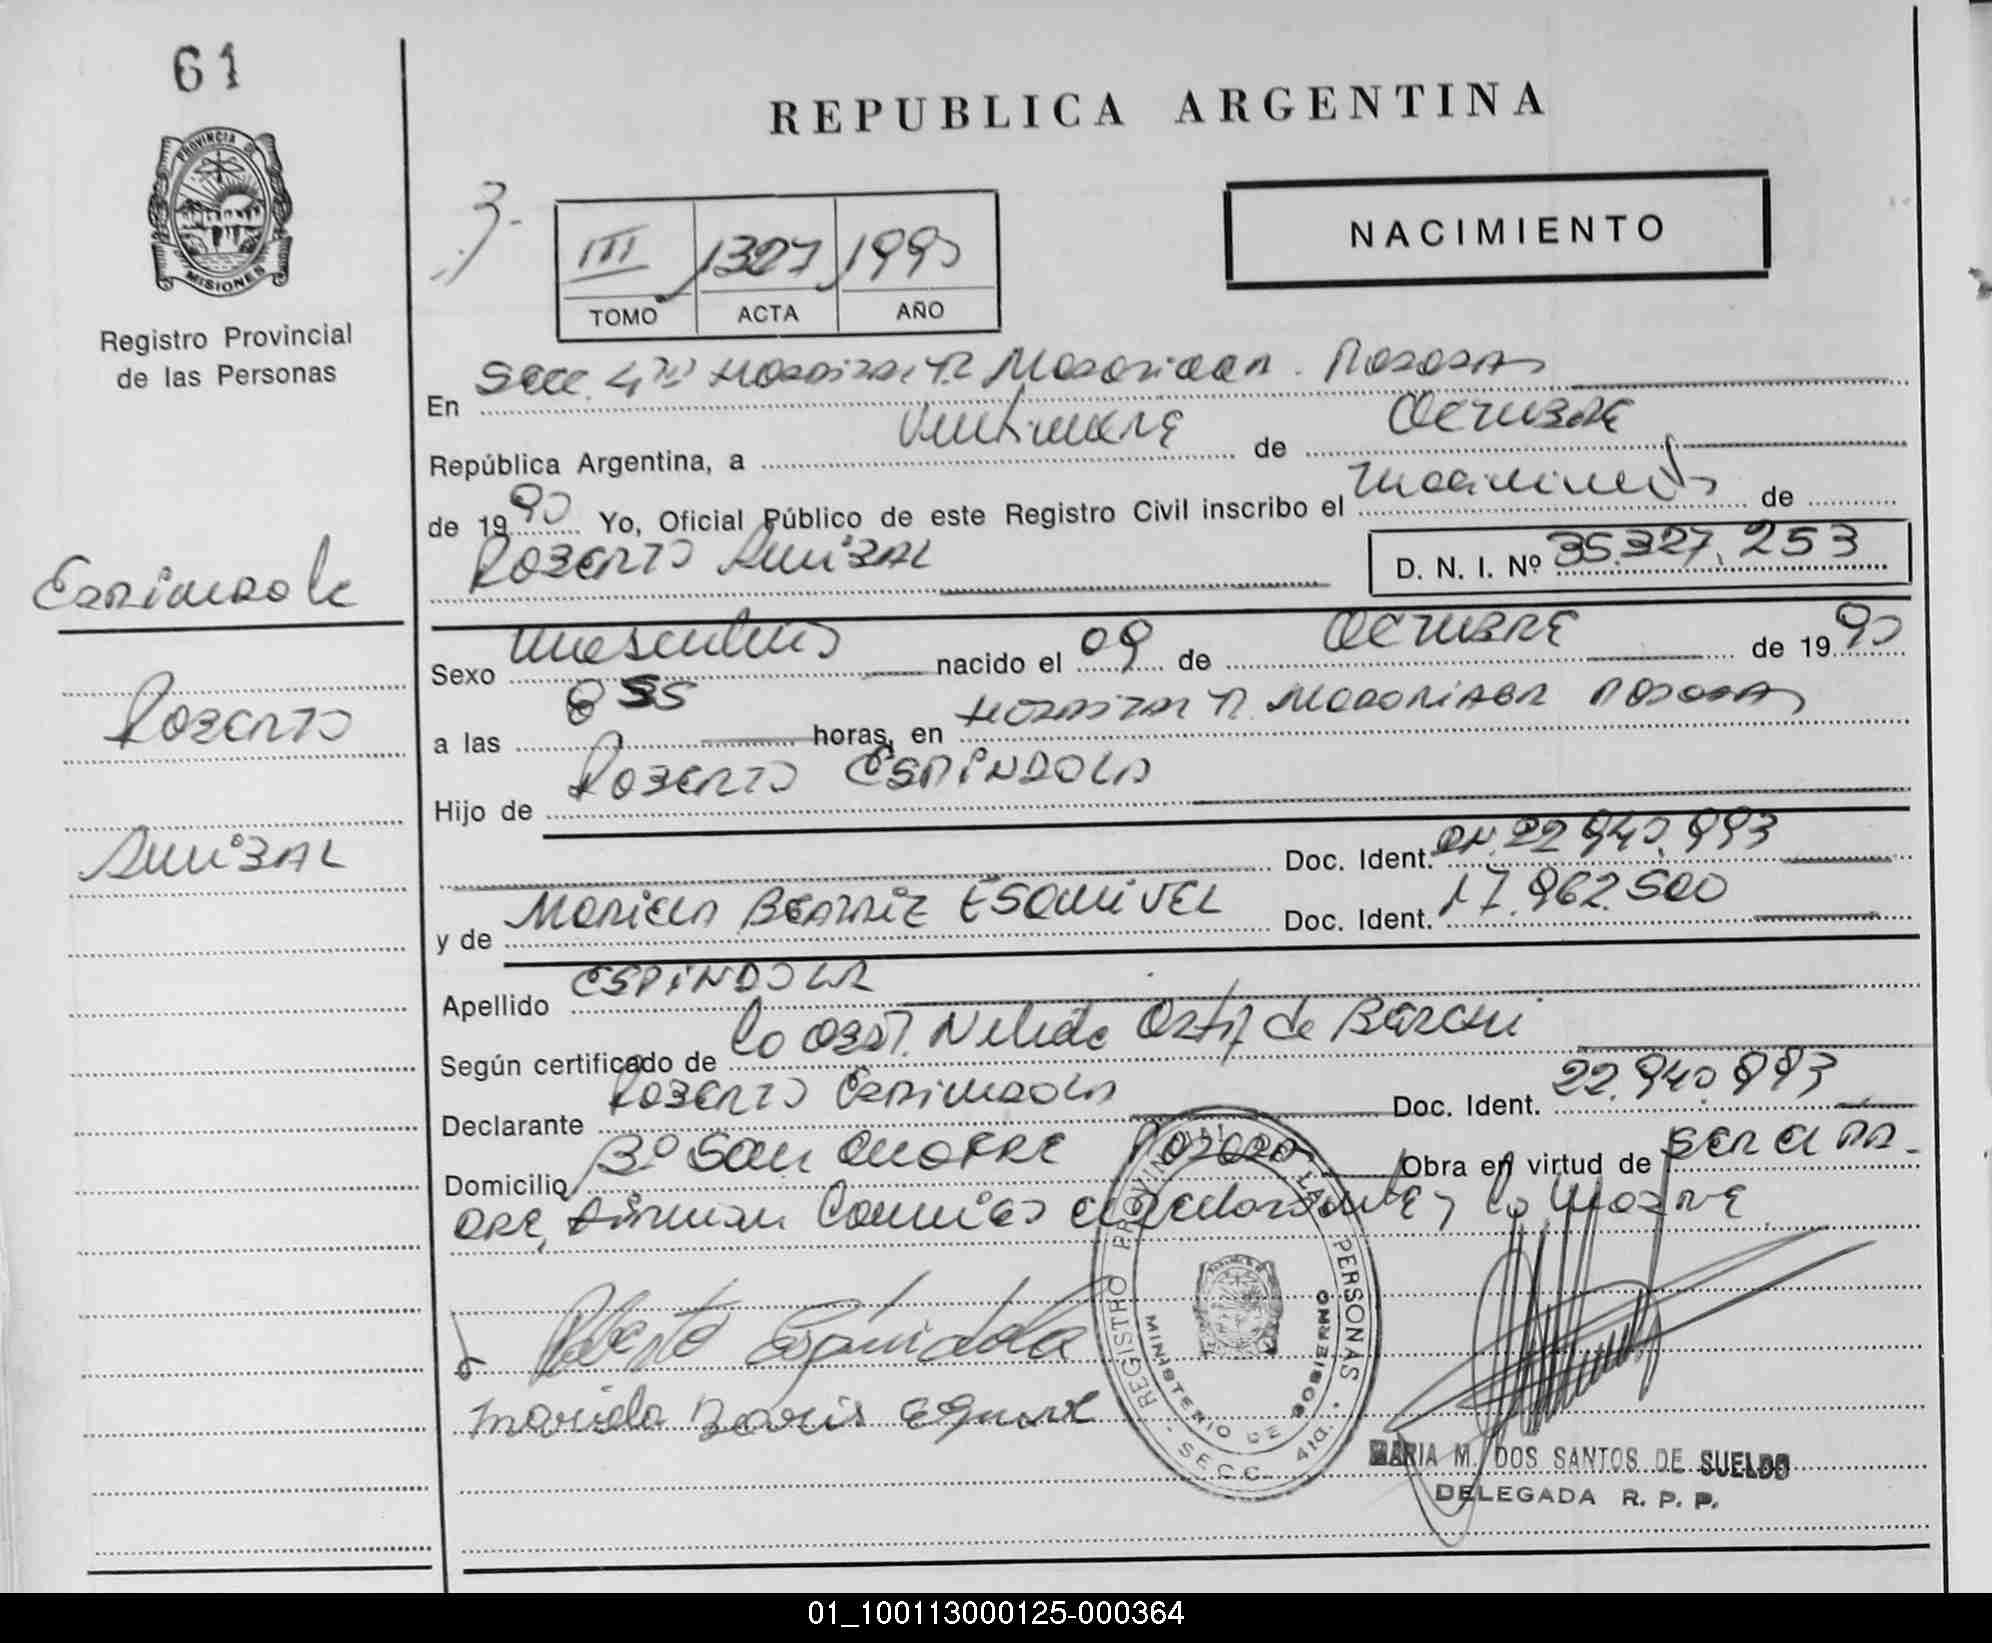 61
REPUBLICA ARGENTINA
PROVINCIA DE
MISIONES
Registro Provincial
de las Personas
3-
III 1327 1990
TOMO ACTA AÑO
NACIMIENTO
En Secc. 4ta Posadas
República Argentina, a de Octubre
de 1990 Yo, Oficial Público de este Registro Civil inscribo el nacimiento de
Roberto Anibal
D. N. I. Nº 35.327.253
Espindola
Roberto
Anibal
Sexo masculino nacido el 09 de Octubre de 1990
a las 8 55 horas, en Posadas
Hijo de Roberto ESPINDOLA
Doc. Ident. 22.940.993
y de Mariela Beatriz ESQUIVEL Doc. Ident. 17.962.500
Apellido ESPINDOLA
Según certificado de la Obst. Nelida Ortiz de
Declarante Roberto Espindola Doc. Ident. 22.940.993
Domicilio Bº San Onofre Posadas Obra en virtud de ser el pa-
dre, Firman Conmigo el declarante y la madre
Roberto Espindola
REGISTRO PROVINCIAL DE LAS PERSONAS
MINISTERIO DE GOBIERNO
SECC. 4ta.
MARIA M. DOS SANTOS DE SUELDO
DELEGADA R. P. P.
01_100113000125-000364